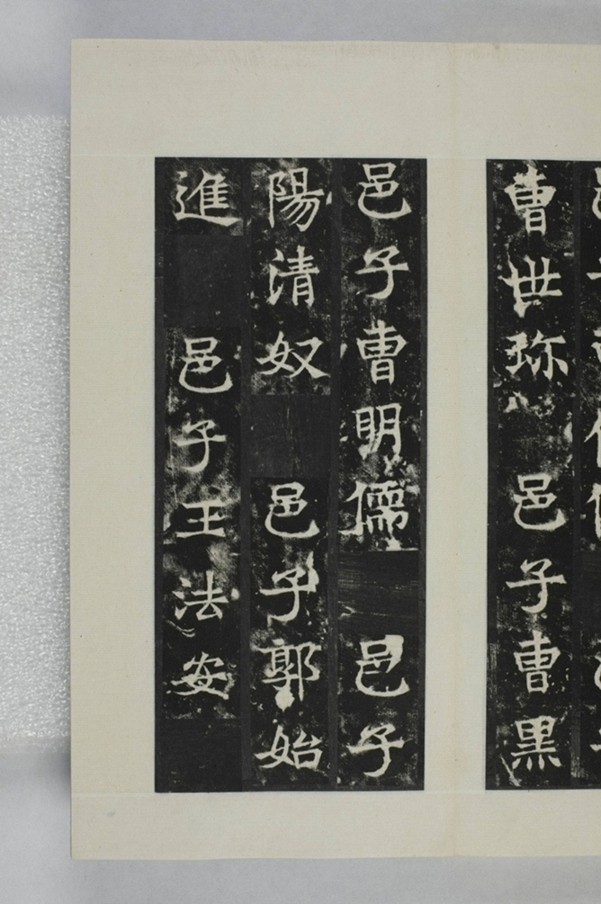 曺世珎 邑子曺黑
邑子曺明儒 邑子
陽清奴 邑子郭始
進 邑子王法安